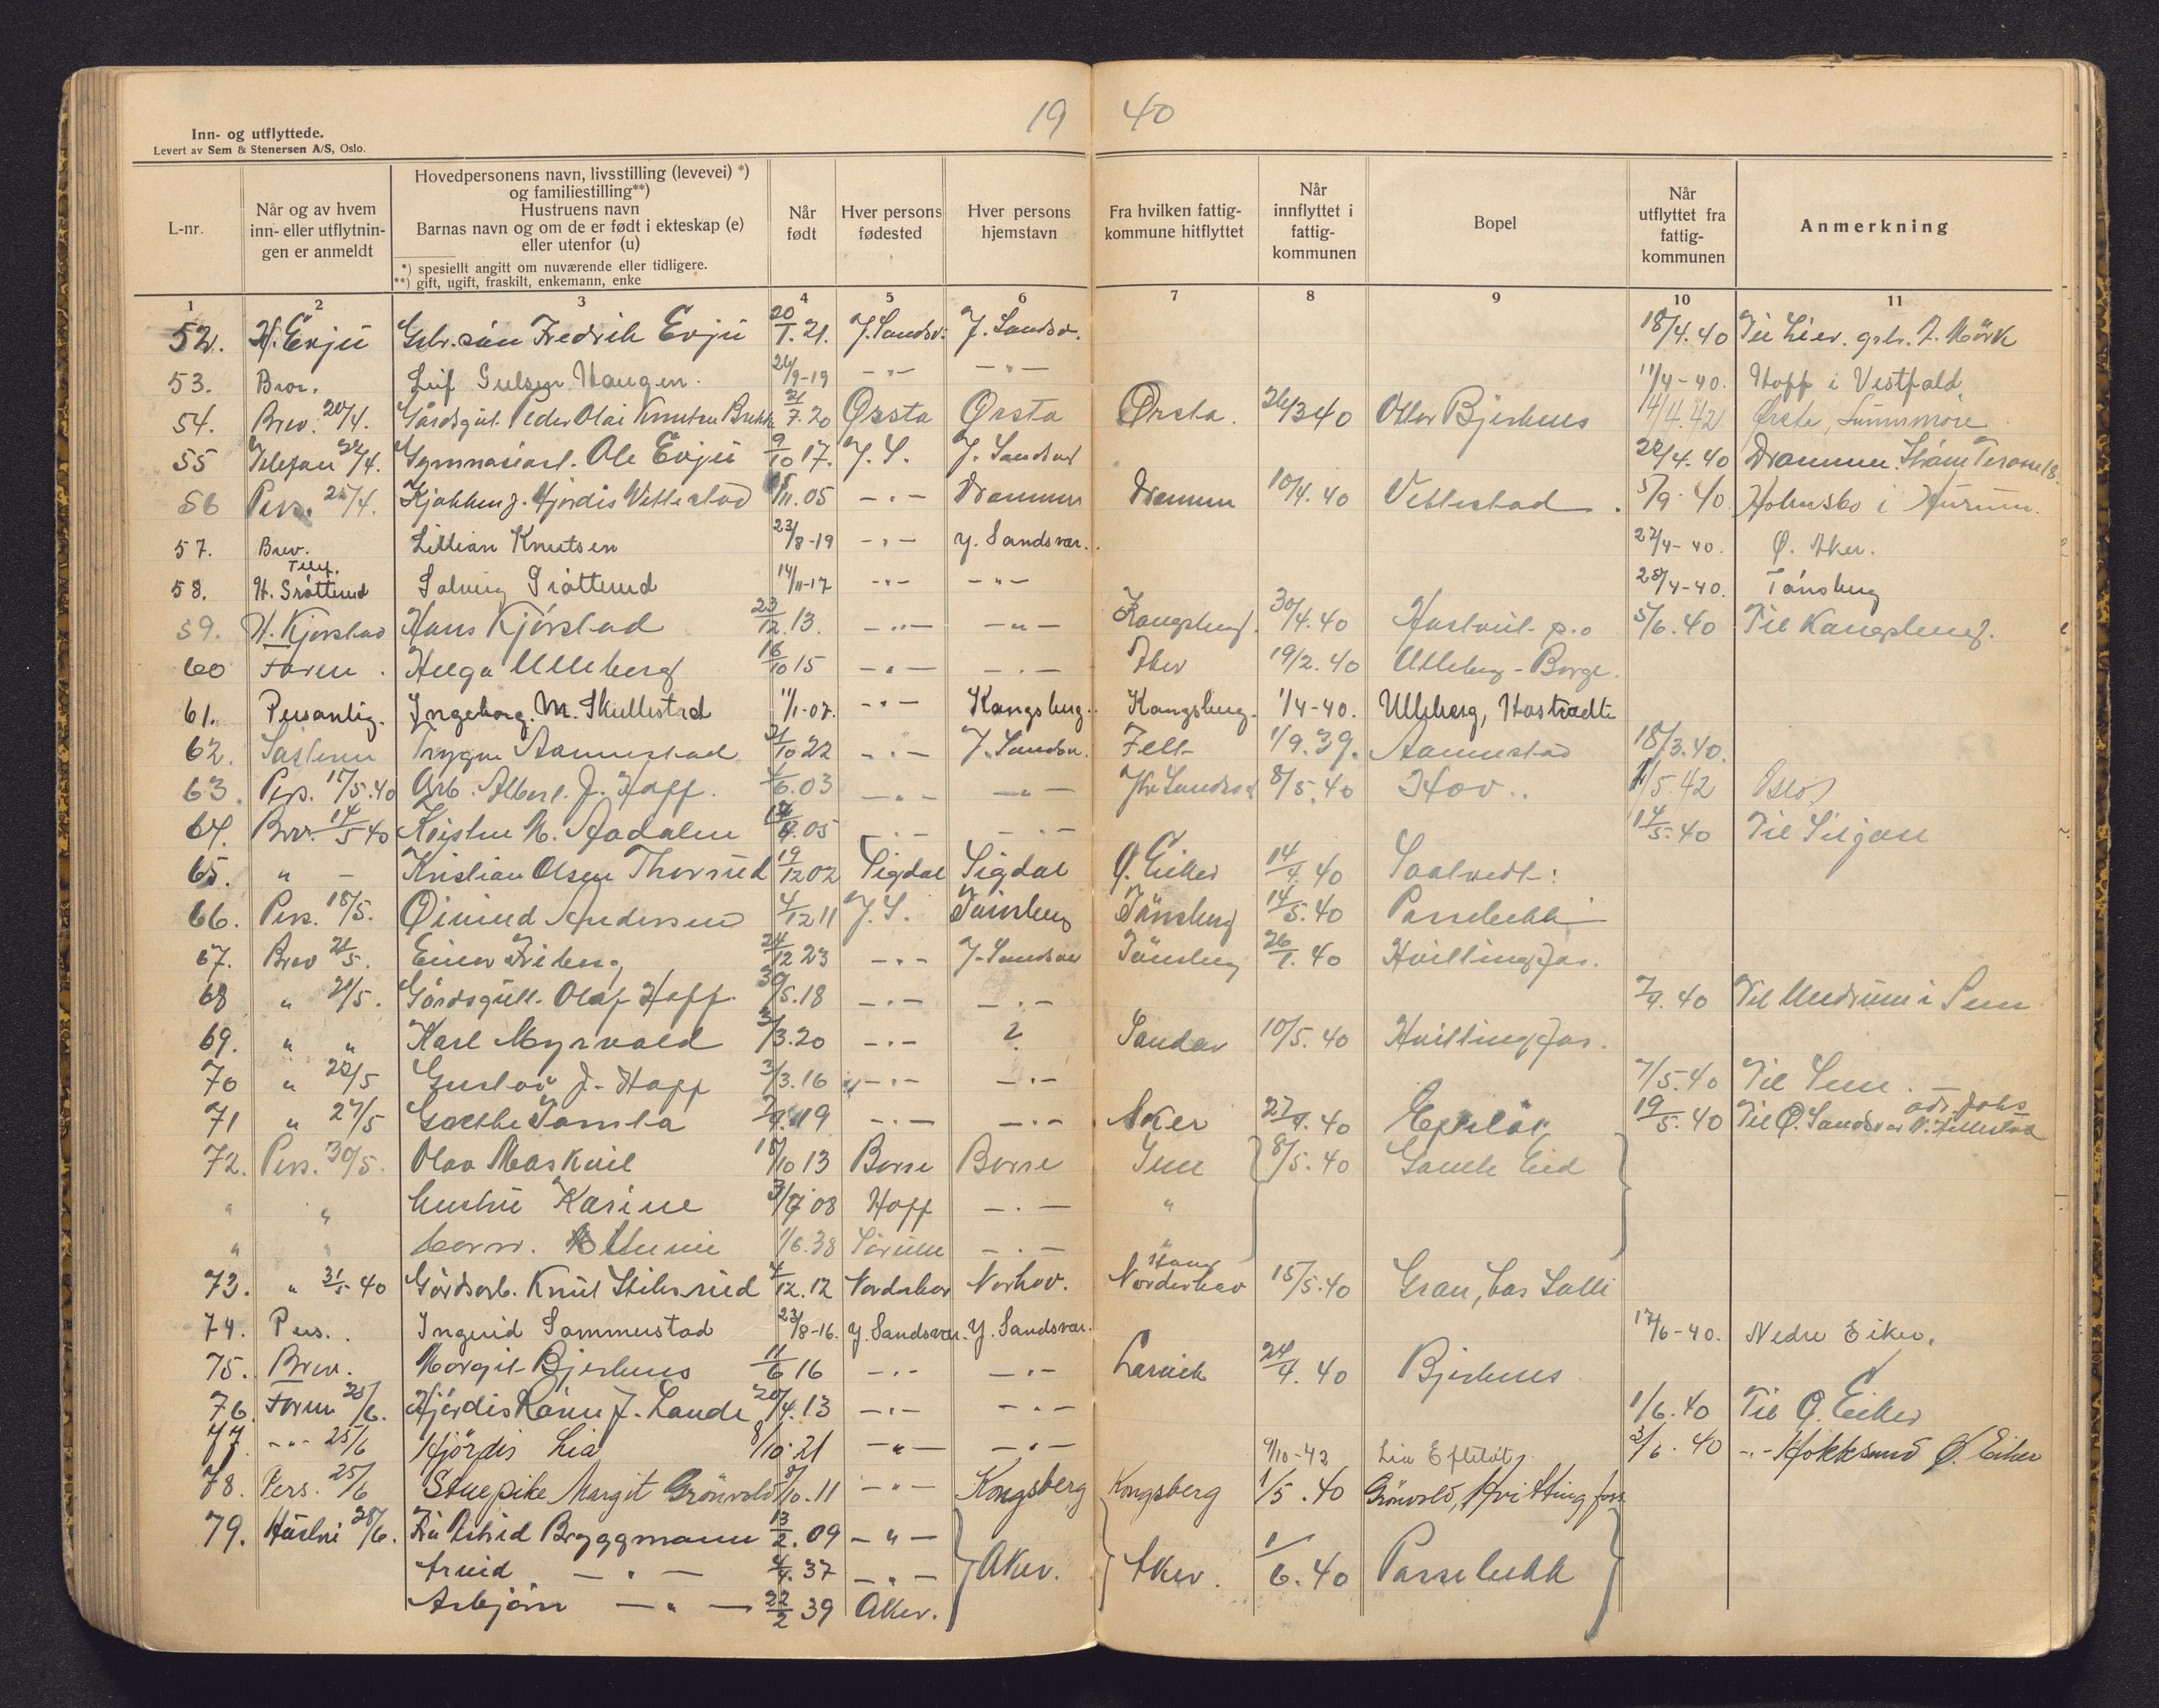 19 40
Inn- og utflyttede.
Levert av Sem & Stenersen A/S, Oslo.
L-nr.
Når og av hvem inn- eller utflytnin- gen er anmeldt
Hovedpersonens navn, livsstilling (levevei) *) og familiestilling**)
Hustruens navn
Barnas navn og om de er født i ekteskap (e) eller utenfor (u)
*) spesiellt angitt om nuværende eller tidligere.
**) gift, ugift, fraskilt, enkemann, enke
Når født
Hver persons fødested
Hver persons hjemstavn
Fra hvilken fattig- kommune hitflyttet
Når innflyttet i fattig- kommunen
Bopel
Når utflyttet fra fattig- kommunen
Anmerkning
1 2 3 4 5 6 7 8 9 10 11
52. H. Evju Gbr. sön Fredrik Evju 20/1. 21. Y. Sandsv. Y. Sandsv. 18/4. 40 Til Lier. gbr. A. Mörk
53. Brev. Leif Haugen. 26/9-19 -"- -"- 11/4-40. Hoff i Vestfold
54. Brev. 20/4. Gårdsgut. Peder Olai Knutsen 21/7. 20 Ørsta Ørsta Ørsta. 26/3 40 Ottar Bjerknes 14/4. 42 Ørsta, Sunnmøre
55 Telefon 22/4. Gymnasiast. Ole Evju 9/10 17. Y. S. Y. Sandsv 22/4. 40 Drammen.
56 Pers. 25/4. Kjøkkenj. Hjørdis Vittestad /11. 05 -"- Drammen Drammen 10/4. 40 Vettestad. 5/9. 40 Holmsbo i Hurum.
57. Brev. Lillian Knutsen 23/8-19 -"- Y. Sandsvær. 27/4-40. Ø. Aker.
58. Telef. H. Gråtterud Solveig Gråtterud 14/11-17 -"- -"- 28/4-40. Tønsberg
59. H. Kjørstad Hans Kjörstad 23/12. 13. -"- -"- Kongsberg. 30/4. 40 Hostveit p.o 5/6. 40 Til Kongsberg.
60 Faren. Helga Ulleberg 16/10 15 -"- -"- Aker 19/2. 40 Ulleberg - Berge.
61. Personlig. Ingeborg. M. Skullestad 11/1-07. -"- Kongsberg. Kongsberg. 1/4-40. Ulleberg, Hostvedt
62. Søsteren Trygve Aannestad 31/10 22 -"- Y. Sandsv. 1/9. 39. Aannestad 18/3. 40.
63. Pers. 17/5. 40 Arb. Albert. J. Hoff. 4/6. 03 -"- -"- Sandsv 8/5. 40 Hov.. 1/5. 42 Oslo
64. Brev. 14/5 40 Kristen N. Aadalen 05 -"- -"- 14/5. 40 Til Siljan
65. " - Kristian Olsen Thorrud 19/12 02 Sigdal Sigdal Ø. Eiker 14/4. 40 Saatvedt:
66. Pers. 18/5. Öivind Andersen 4/12 11 Y. S. Tönsberg Tönsberg 14/5. 40 Passebekk
67. Brev 21/5. Einar Friberg 24/12 23 -"- Y. Sandsv Tönsberg 26/1. 40 Hvittingfos.
68 " 21/5. Gårdsgutt. Olaf Hoff. 30/5. 18 -"- -"- 7/4. 40 Til Undrum i Sem
69. " " Karl Myrvold 3/3. 20 -"- ? Sandar 10/5. 40 Hvittingfos.
70 " 22/5 Gustav J. Hoff 3/3. 16 -"- -"- 7/5. 40 Til Sem.
71 " 27/5 Goethe Tomta 19 -"- -"- Aker 27/4. 40 Efteløt 19/5. 40 Til Ø. Sandsvær
72. Pers. 30/5. Olav Maskeil 15/10 13 Borre Borre Sem 8/5. 40 Gamle Eid
" " hustru Karine 3/7 08 Hoff -"- "
" " barn. Unni 1/6. 38 -"- "
73. " 31/5 40 Gårdsarb. Knut Stiksrud 4/12. 12 Norderhov Norhov. Norderhov 15/5. 40 Gran,
74. Pers. Ingrid Sommerstad 23/8-16. Y. Sandsvær. Y. Sandsvær. 17/6-40. Nedre Eiker.
75. Brev. Margit Bjerknes 11/6 16 -"- -"- Larvik 24/4. 40 Bjerknes
76. Faren 25/6. Hjördis Karin J. Lande 20/4. 13 -"- -"- 1/6. 40 Til Ø. Eiker
77. -"- 25/6 Hjördis Lia 8/10. 21 -"- -"- 9/10-42 Lia Efteløt 3/6. 40 -"- Hokksund Ø. Eiker
78. Pers. 25/6 Stuepike Margit Grönvold 8/10. 11 -"- Kongsberg Kongsberg 1/5. 40 Grönvold, Hvittingfoss
79. Hustru 28/6. Fru Astrid Bryggmann 13/2. 09 -"- Aker. Aker. 1/6. 40 Passebekk
Arvid -"- 4/4. 37 -"-
Asbjörn -"- 22/2 39 Aker.